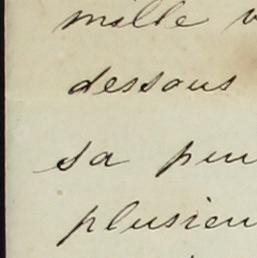 mille v
dessous
sa peu
plusieu